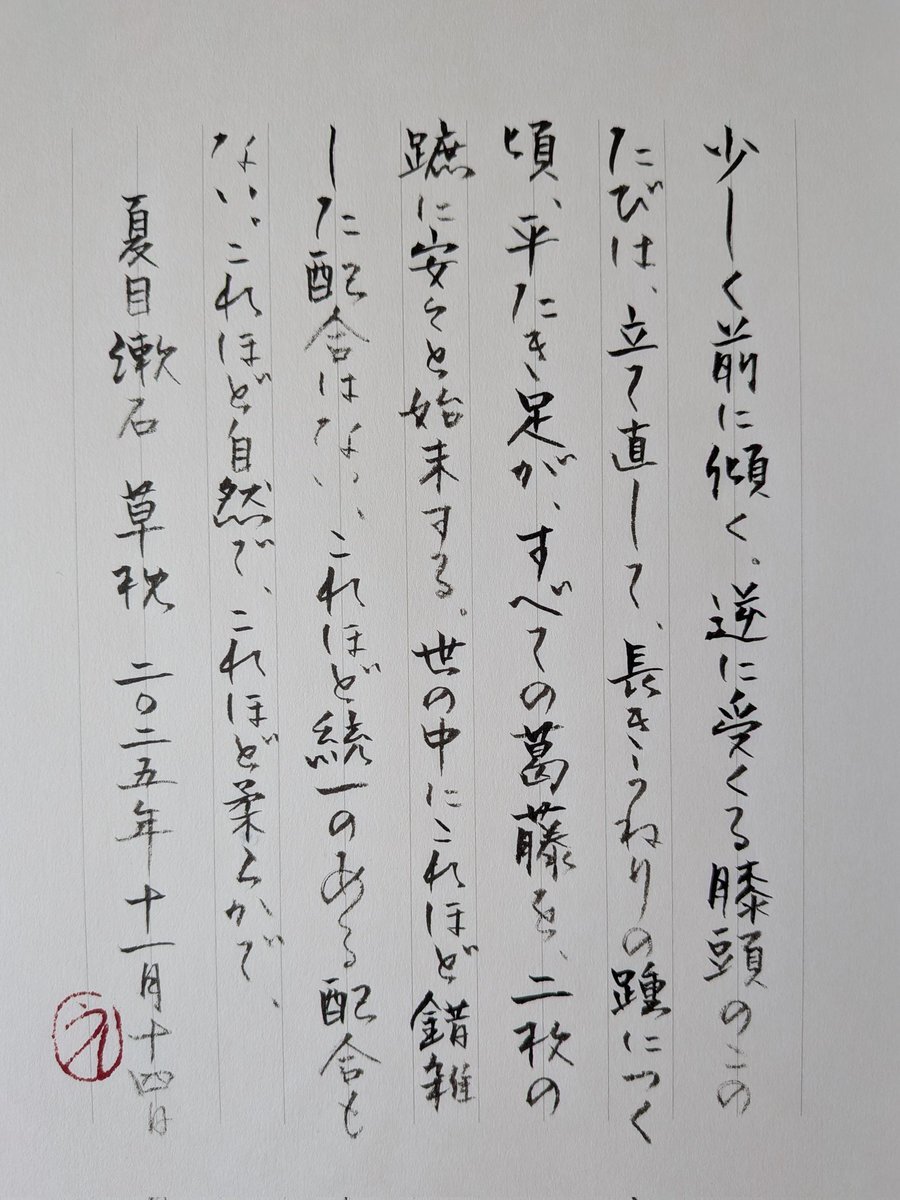 少しく前に傾く。逆に受くる膝頭のこの
たびは、立て直して、長きうねりの踵につく
頃、平たき足が、すべての葛藤を、二枚の
蹠に安々と始末する。世の中にこれほど錯雑
した配合はない、これほど統一のある配合も
ない。これほど自然で、これほど柔らかで、
夏目漱石 草枕 二〇二五年十一月十四日